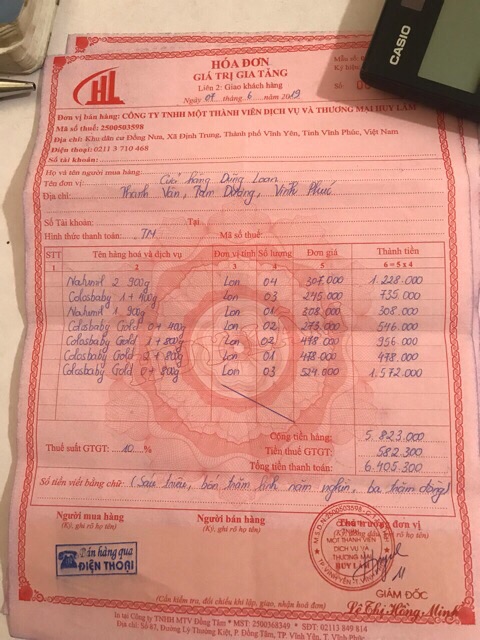 CASIO
HL
HÓA ĐƠN
GIÁ TRỊ GIA TĂNG
Liên 2: Giao khách hàng
Ngày 07 tháng 6 năm 2019
Mẫu số:
Ký hiệu
Số:
Đơn vị bán hàng: CÔNG TY TNHH MỘT THÀNH VIÊN DỊCH VỤ VÀ THƯƠNG MẠI HUY LÂM
Mã số thuế: 2500503598
Địa chỉ: Khu dân cư Đồng Nưa, Xã Định Trung, Thành phố Vĩnh Yên, Tỉnh Vĩnh Phúc, Việt Nam
Điện thoại: 0211 3 710 468
Số tài khoản:
Họ và tên người mua hàng:
Tên đơn vị: Cửa hàng Dũng Loan
Địa chỉ: Thanh Vân, Tam Dương, Vĩnh Phúc
Số Tài khoản: Tại
Hình thức thanh toán: TM Mã số thuế:
STT Tên hàng hoá và dịch vụ Đơn vị tính Số lượng Đơn giá Thành tiền
1 2 3 4 5 6 = 5 x 4
2 900g Lon 04 307.000 1.228.000
Colosbaby 1+ 400g Lon 03 245.000 735.000
1 900g Lon 01 308.000 308.000
Colosbaby Gold 0+ 400g Lon 02 273.000 546.000
Colosbaby Gold 1+ 800g Lon 02 478.000 956.000
Colosbaby Gold 2+ 800g Lon 01 478.000 478.000
Colosbaby Gold 0+ 800g Lon 03 524.000 1.572.000
Cộng tiền hàng: 5.823.000
Thuế suất GTGT: 10 % Tiền thuế GTGT: 582.300
Tổng tiền thanh toán: 6.405.300
Số tiền viết bằng chữ: (Sáu triệu, bốn trăm linh năm nghìn, ba trăm đồng)
Người mua hàng Người bán hàng Thủ trưởng đơn vị
(Ký, ghi rõ họ tên) (Ký, ghi rõ họ tên)
Bán hàng qua
ĐIỆN THOẠI
M.S.D.N: 2500503598
MỘT THÀNH VIÊN
DỊCH VỤ VÀ
THƯƠNG MẠI
HUY LÂM
GIÁM ĐỐC
Lê Thị Hồng Minh
(Cần kiểm tra, đối chiếu khi lập, giao, nhận hoá đơn)
In tại Công ty TNHH MTV Đồng Tâm * MST: 2500368349 * SĐT: 02113 849 814